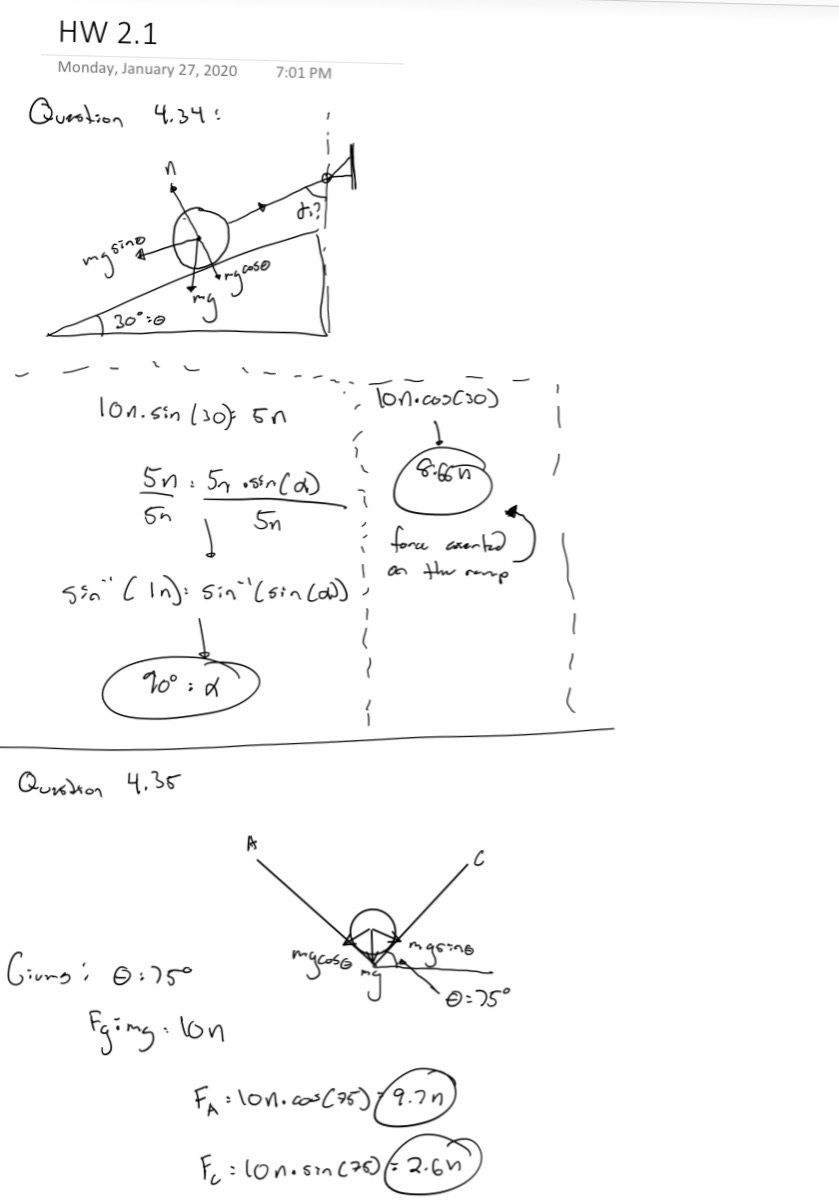 HW 2.1
Monday, January 27, 2020 7:01 PM
Question 4.34:
n
α:?
mg sinθ
mg cosθ
mg
30°=θ
10n·sin(30)= 5n
5n = 5n·sin(α)
5n 5n
sin⁻¹(1n)= sin⁻¹(sin(α))
90° = α
10n·cos(30)
8.66n
force exerted
on the ramp
Question 4.35
A
C
mgcosθ
mgsinθ
mg
θ=75°
Givens: θ=75°
Fg=mg=10n
F_A = 10n·cos(75)=9.7n
F_C = 10n·sin(75)=2.6n